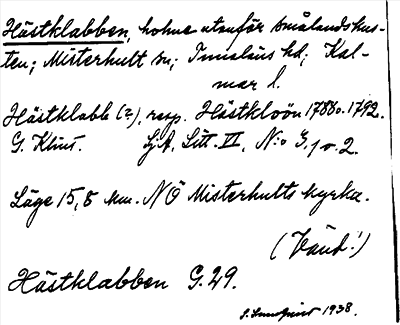 Hästklabben, holme utanför smålandskus-
ten; Misterhult sn; Tunaläns hd; Kal-
mar l.
Hästklabb (z), resp. Hästkloön 1788 o. 1792.
G. Klint. Sjk. Litt. II, N:o 3, 1 o. 2.
Läge 15,8 km. NÖ Misterhults kyrka.
(Vänd!)
Hästklabben G. 29.
1938.